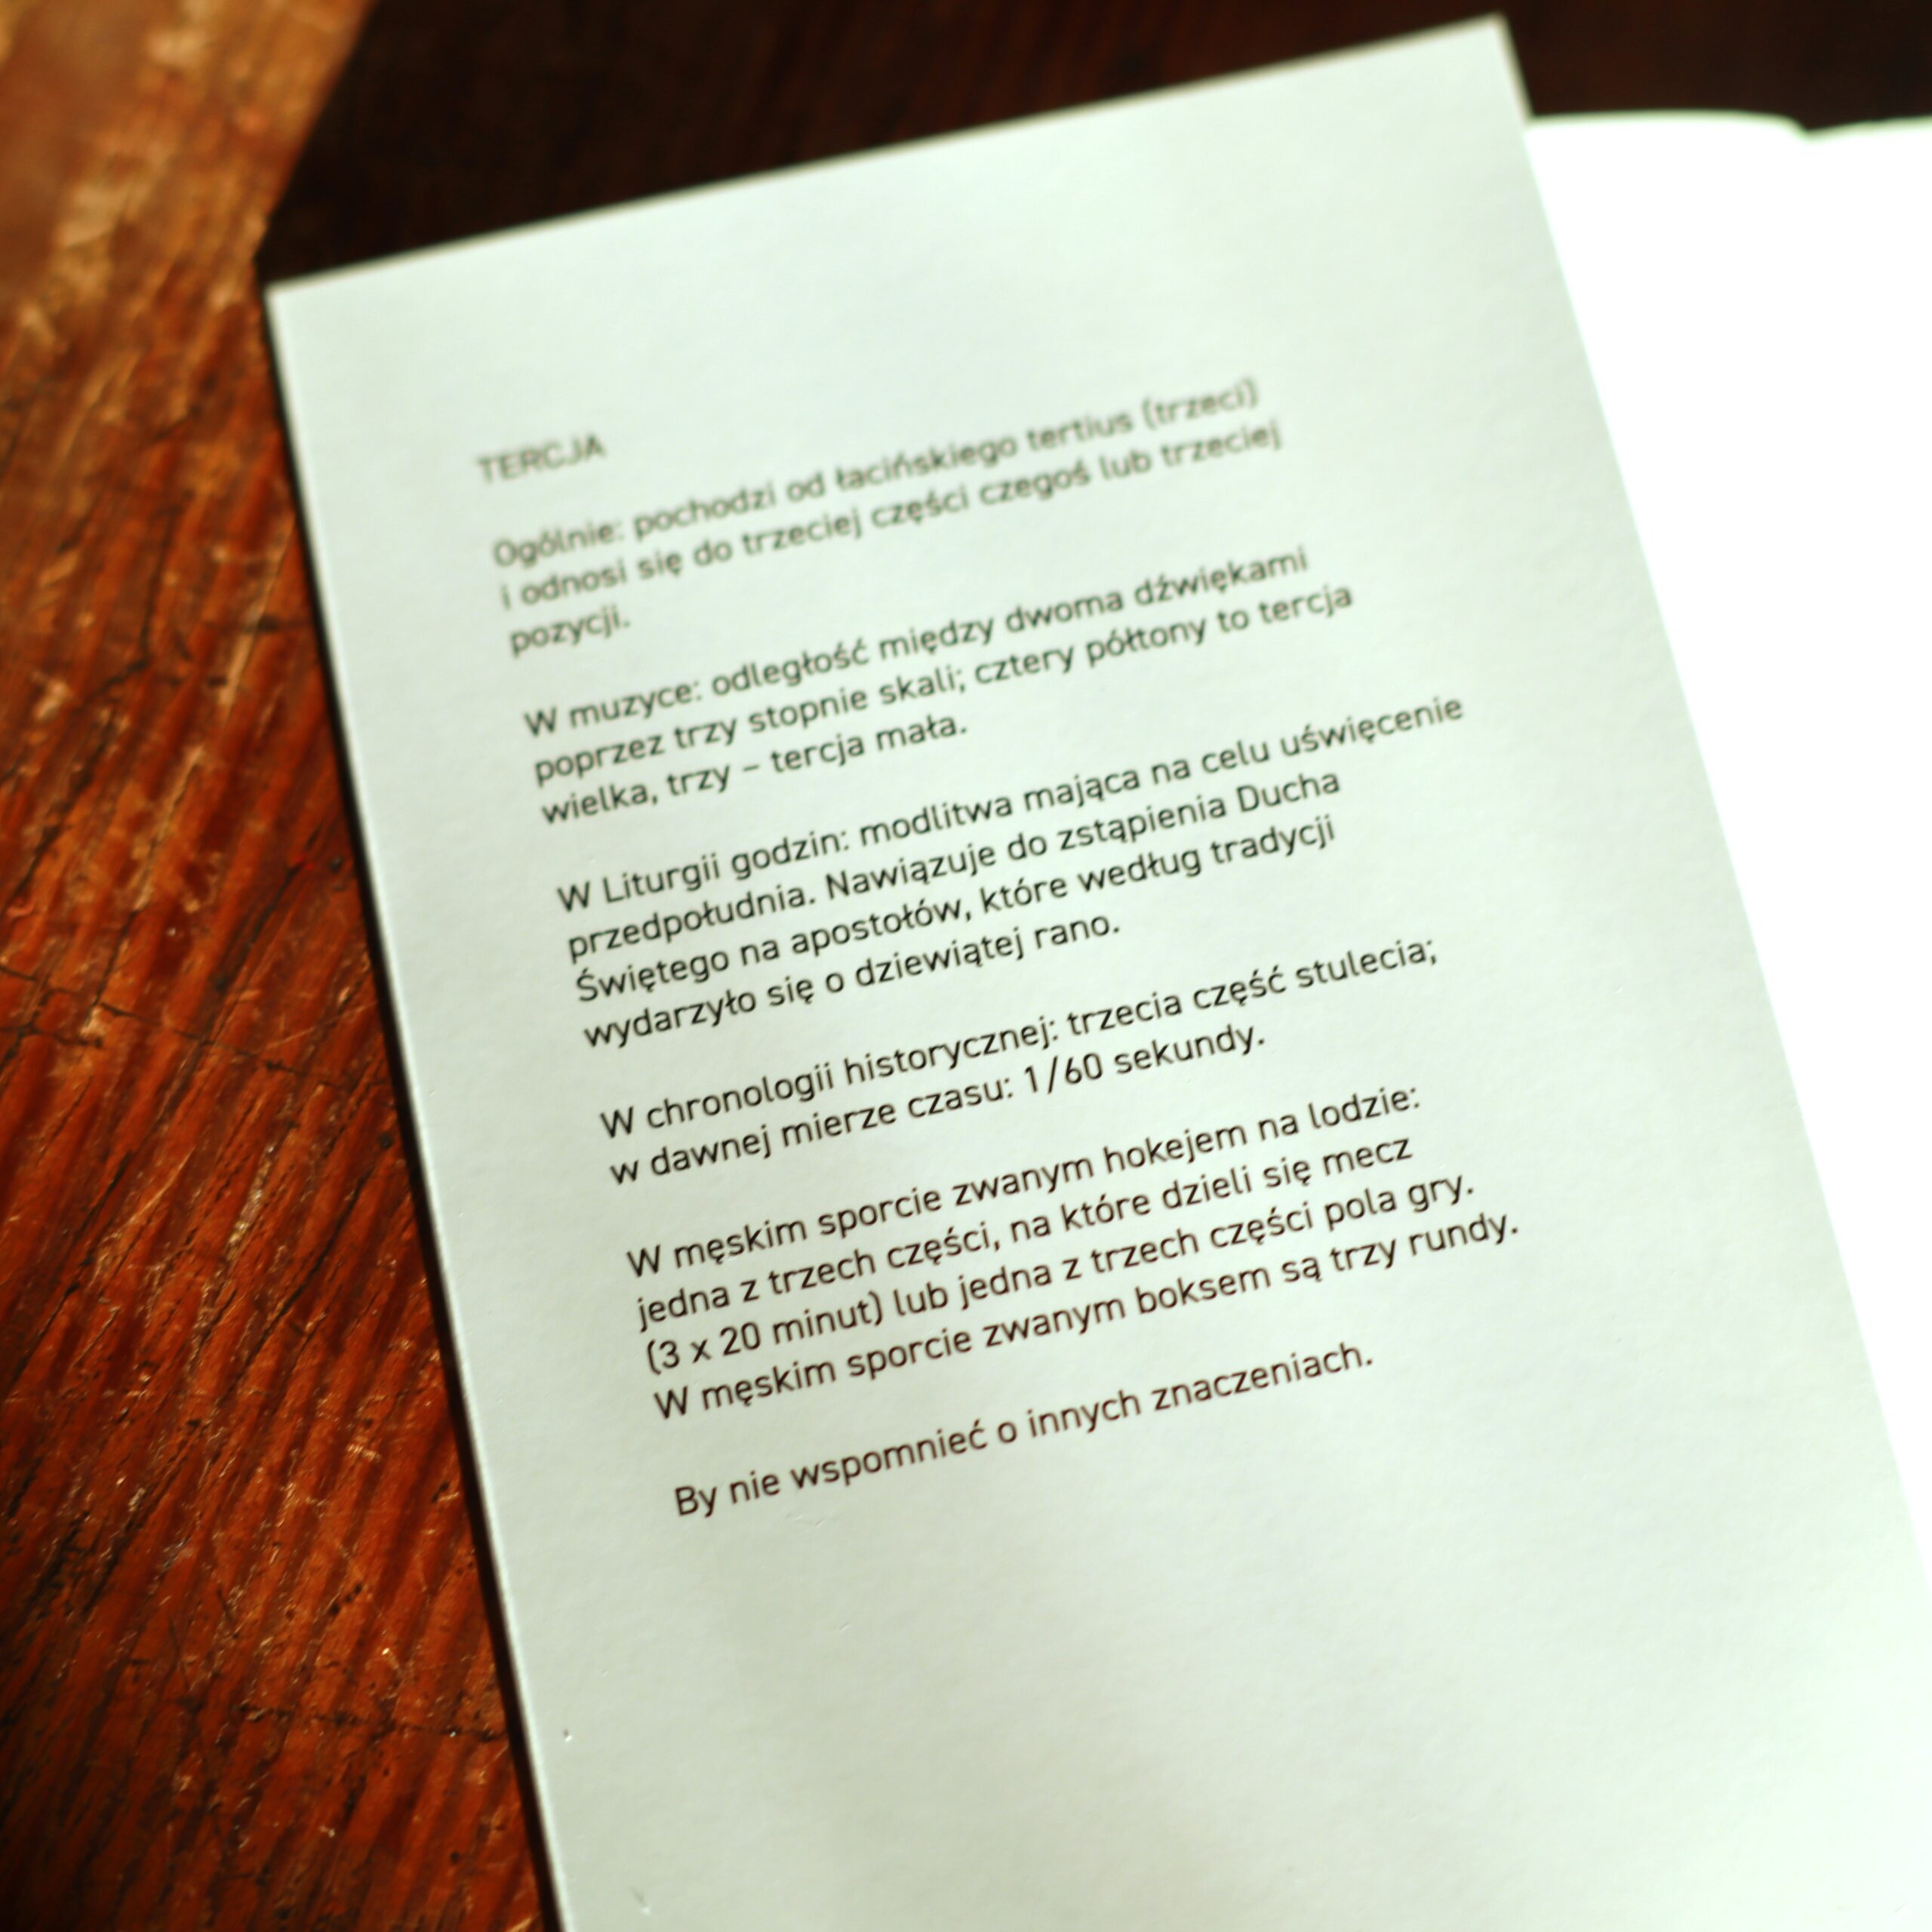 TERCJA
Ogólnie: pochodzi od łacińskiego tertius (trzeci)
i odnosi się do trzeciej części czegoś lub trzeciej
pozycji.
W muzyce: odległość między dwoma dźwiękami
poprzez trzy stopnie skali; cztery półtony to tercja
wielka, trzy – tercja mała.
W Liturgii godzin: modlitwa mająca na celu uświęcenie
przedpołudnia. Nawiązuje do zstąpienia Ducha
Świętego na apostołów, które według tradycji
wydarzyło się o dziewiątej rano.
W chronologii historycznej: trzecia część stulecia;
w dawnej mierze czasu: 1/60 sekundy.
W męskim sporcie zwanym hokejem na lodzie:
jedna z trzech części, na które dzieli się mecz
(3 x 20 minut) lub jedna z trzech części pola gry.
W męskim sporcie zwanym boksem są trzy rundy.
By nie wspomnieć o innych znaczeniach.